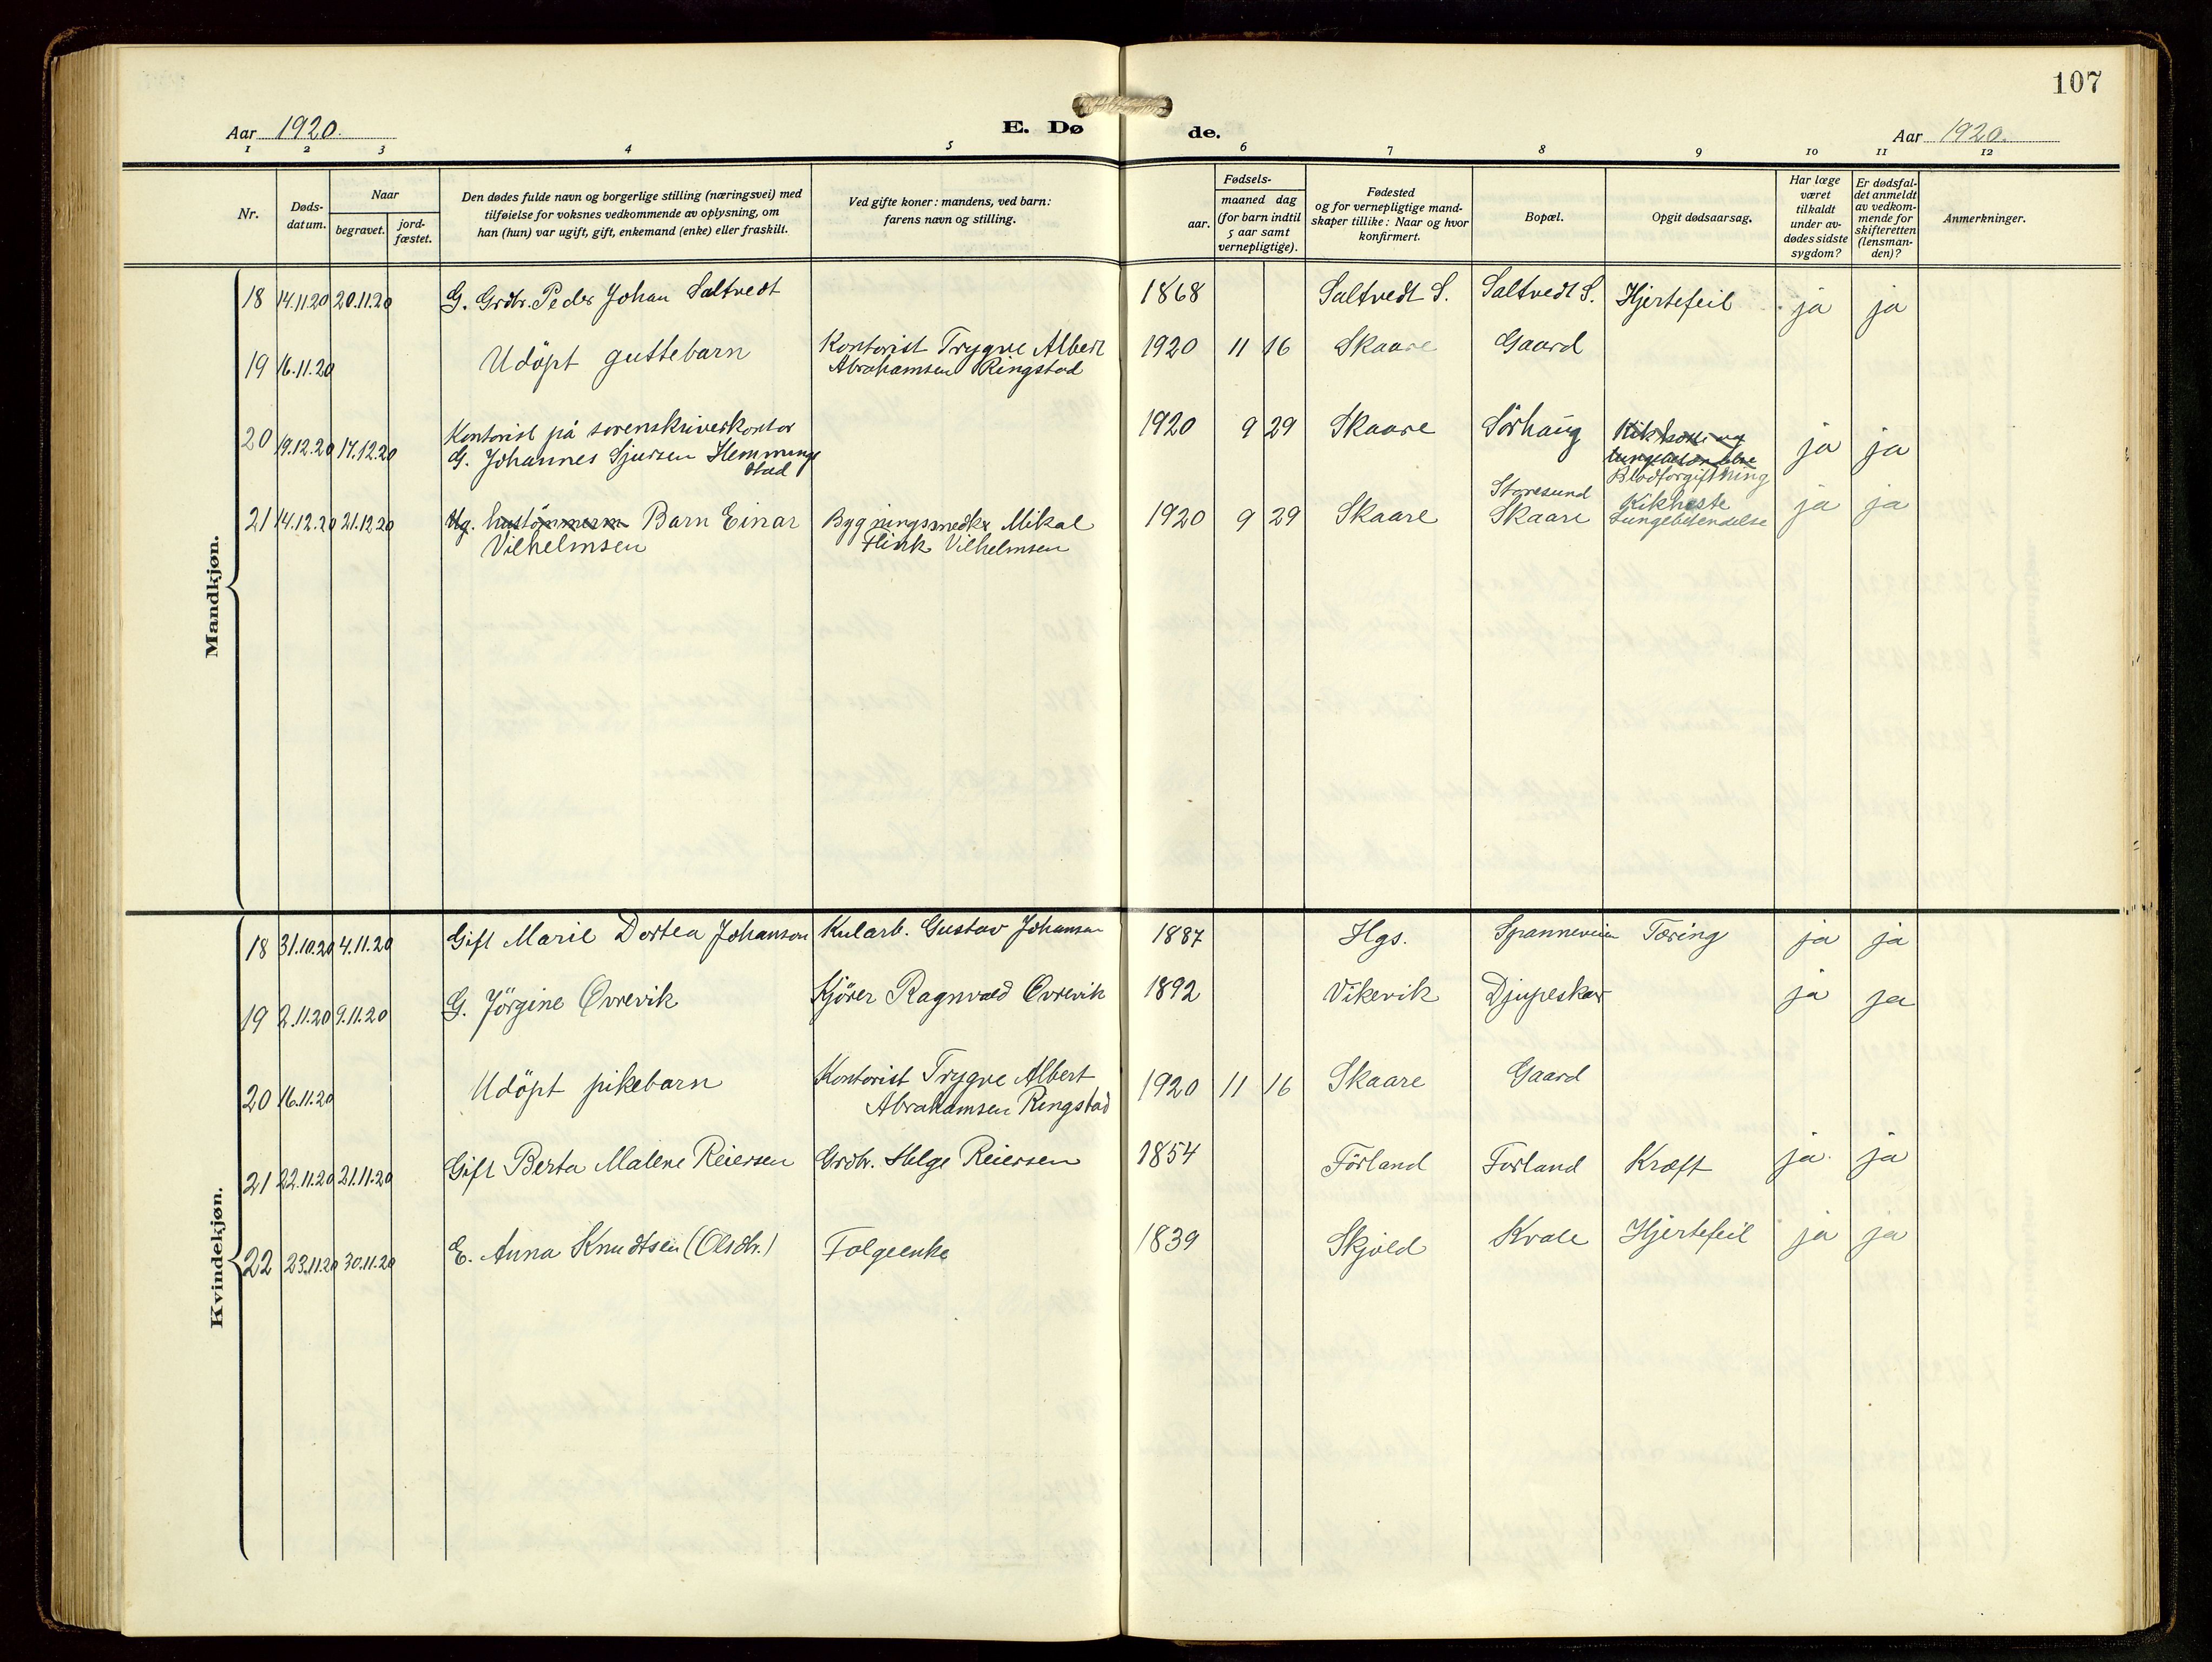 107
Aar 1920.
E. Dø de.
Aar 1920.
1 2 3 4 5 6 7 8 9 10 11 12
Nr.
Døds-
datum.
Naar
begravet.
jord-
fæstet.
Den dødes fulde navn og borgerlige stilling (næringsvei) med
tilføielse for voksnes vedkommende av oplysning, om
han (hun) var ugift, gift, enkemand (enke) eller fraskilt.
Ved gifte koner: mandens, ved barn:
farens navn og stilling.
Fødsels-
aar.
maaned dag
(for barn indtil
5 aar samt
vernepligtige).
Fødested
og for vernepligtige mand-
skaper tillike: Naar og hvor
konfirmert.
Bopæl.
Opgit dødsaarsag.
Har læge
været
tilkaldt
under av-
dødes sidste
sygdom?
Er dødsfal-
det anmeldt
av vedkom-
mende for
skifteretten
(lensman-
den)?
Anmerkninger.
Mandkjøn.
18 14.11.20 20.11.20 G. Grdbr. Peder Johan Saltvedt 1868 Saltvedt S. Saltvedt S. Hjertefeil ja ja
19 16.11.20 Udöpt guttebarn Kontorist Trygve Albert
Abrahamsen Ringstad 1920 11 16 Skaare Gaard
20 9.12.20 17.12.20 Kontorist på sorenskriverkontor
G. Johannes Sjursen Hemmings
stad 1920 9 29 Skaare Sörhaug Kikhoste og
lungebetændelse
Blodforgiftning ja ja
21 14.12.20 21.12.20 Ug. hustömmerm Barn Einar
Vilhelmsen Bygningssnedker Mikal
Flink Vilhelmsen 1920 9 29 Skaare Storesund
Skaare Kikhoste
Lungebetendelse ja ja
Kvindekjøn.
18 31.10.20 4.11.20 Gift Marie Dortea Johanson Kularb. Gustav Johansen 1887 Hgs. Spanneveien Tæring ja ja
19 2.11.20 9.11.20 G. Jörgine Øvrevik Kjörer Ragnvald Øvrevik 1892 Vikevik Djupeskar ja ja
20 16.11.20 Udöpt pikebarn Kontorist Trygve Albert
Abrahamsen Ringstad 1920 11 16 Skaare Gaard
21 22.11.20 21.11.20 Gift Berta Malene Reiersen Grdbr. Helge Reiersen 1854 Förland Forland Kræft ja ja
22 23.11.20 30.11.20 E. Anna Knudtsen (Olsdtr.) Folgeenke 1839 Skjold Kvale Hjertefeil ja ja